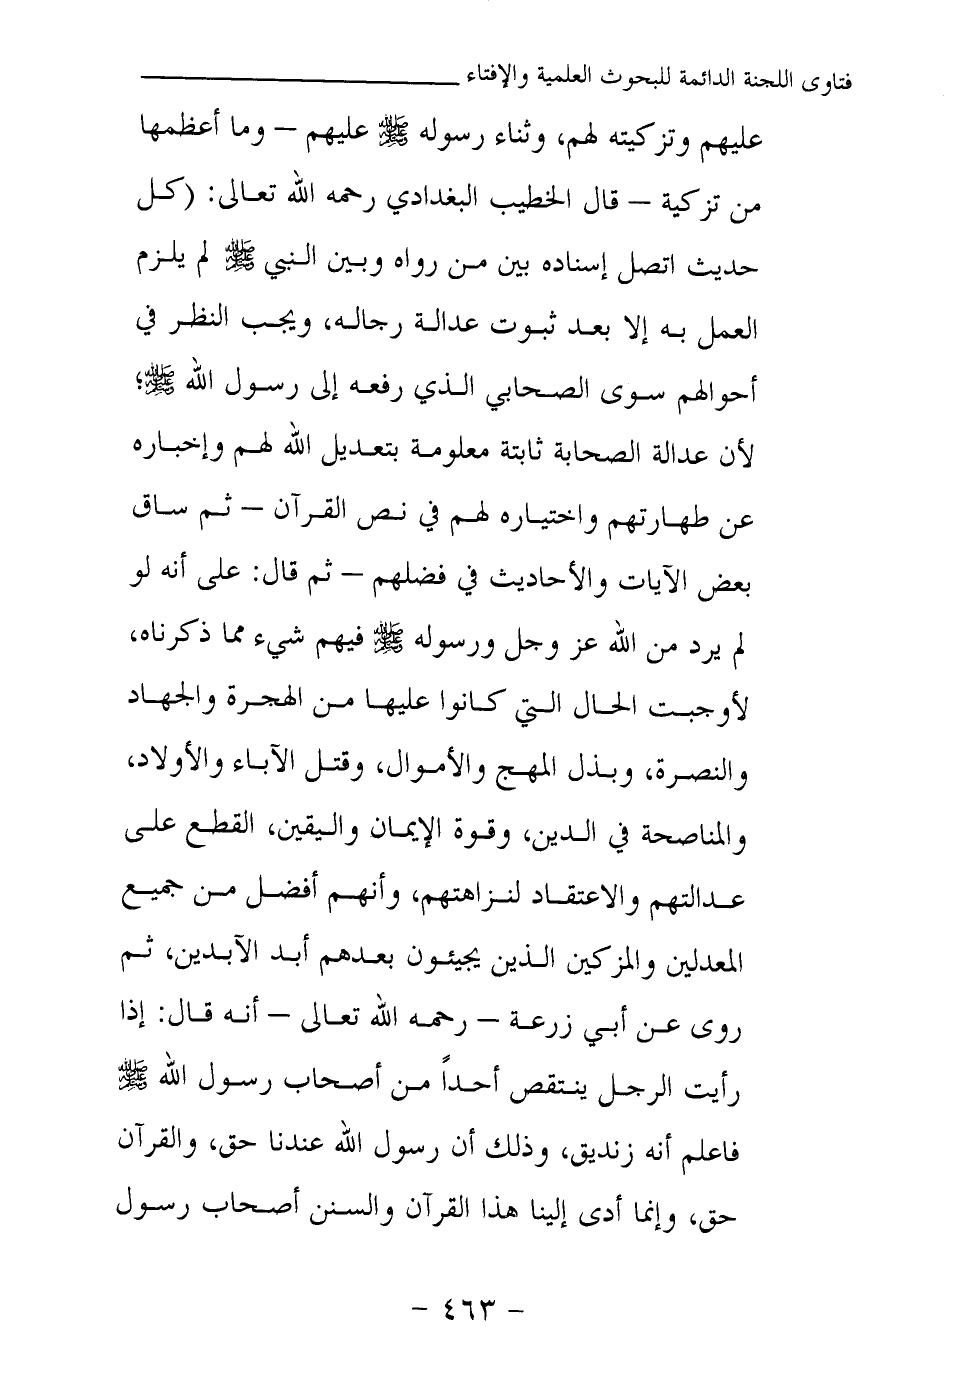 فتاوى اللجنة الدائمة للبحوث العلمية والإفتاء
عليهم وتزكيته لهم، وثناء رسوله ﷺ عليهم – وما أعظمها
من تزكية – قال الخطيب البغدادي رحمه الله تعالى: (كل
حديث اتصل إسناده بين من رواه وبين النبي ﷺ لم يلزم
العمل به إلا بعد ثبوت عدالة رجاله، ويجب النظر في
أحوالهم سوى الصحابي الذي رفعه إلى رسول الله ﷺ؛
لأن عدالة الصحابة ثابتة معلومة بتعديل الله لهم وإخباره
عن طهارتهم واختياره لهم في نص القرآن – ثم ساق
بعض الآيات والأحاديث في فضلهم – ثم قال: على أنه لو
لم يرد من الله عز وجل ورسوله ﷺ فيهم شيء مما ذكرناه،
لأوجبت الحال التي كانوا عليها من الهجرة والجهاد
والنصرة، وبذل المهج والأموال، وقتل الآباء والأولاد،
والمناصحة في الدين، وقوة الإيمان واليقين، القطع على
عدالتهم والاعتقاد لنزاهتهم، وأنهم أفضل من جميع
المعدلين والمزكين الذين يجيئون بعدهم أبد الآبدين، ثم
روى عن أبي زرعة – رحمه الله تعالى – أنه قال: إذا
رأيت الرجل ينتقص أحداً من أصحاب رسول الله ﷺ
فاعلم أنه زنديق، وذلك أن رسول الله عندنا حق، والقرآن
حق، وإنما أدى إلينا هذا القرآن والسنن أصحاب رسول
– ٤٦٣ –